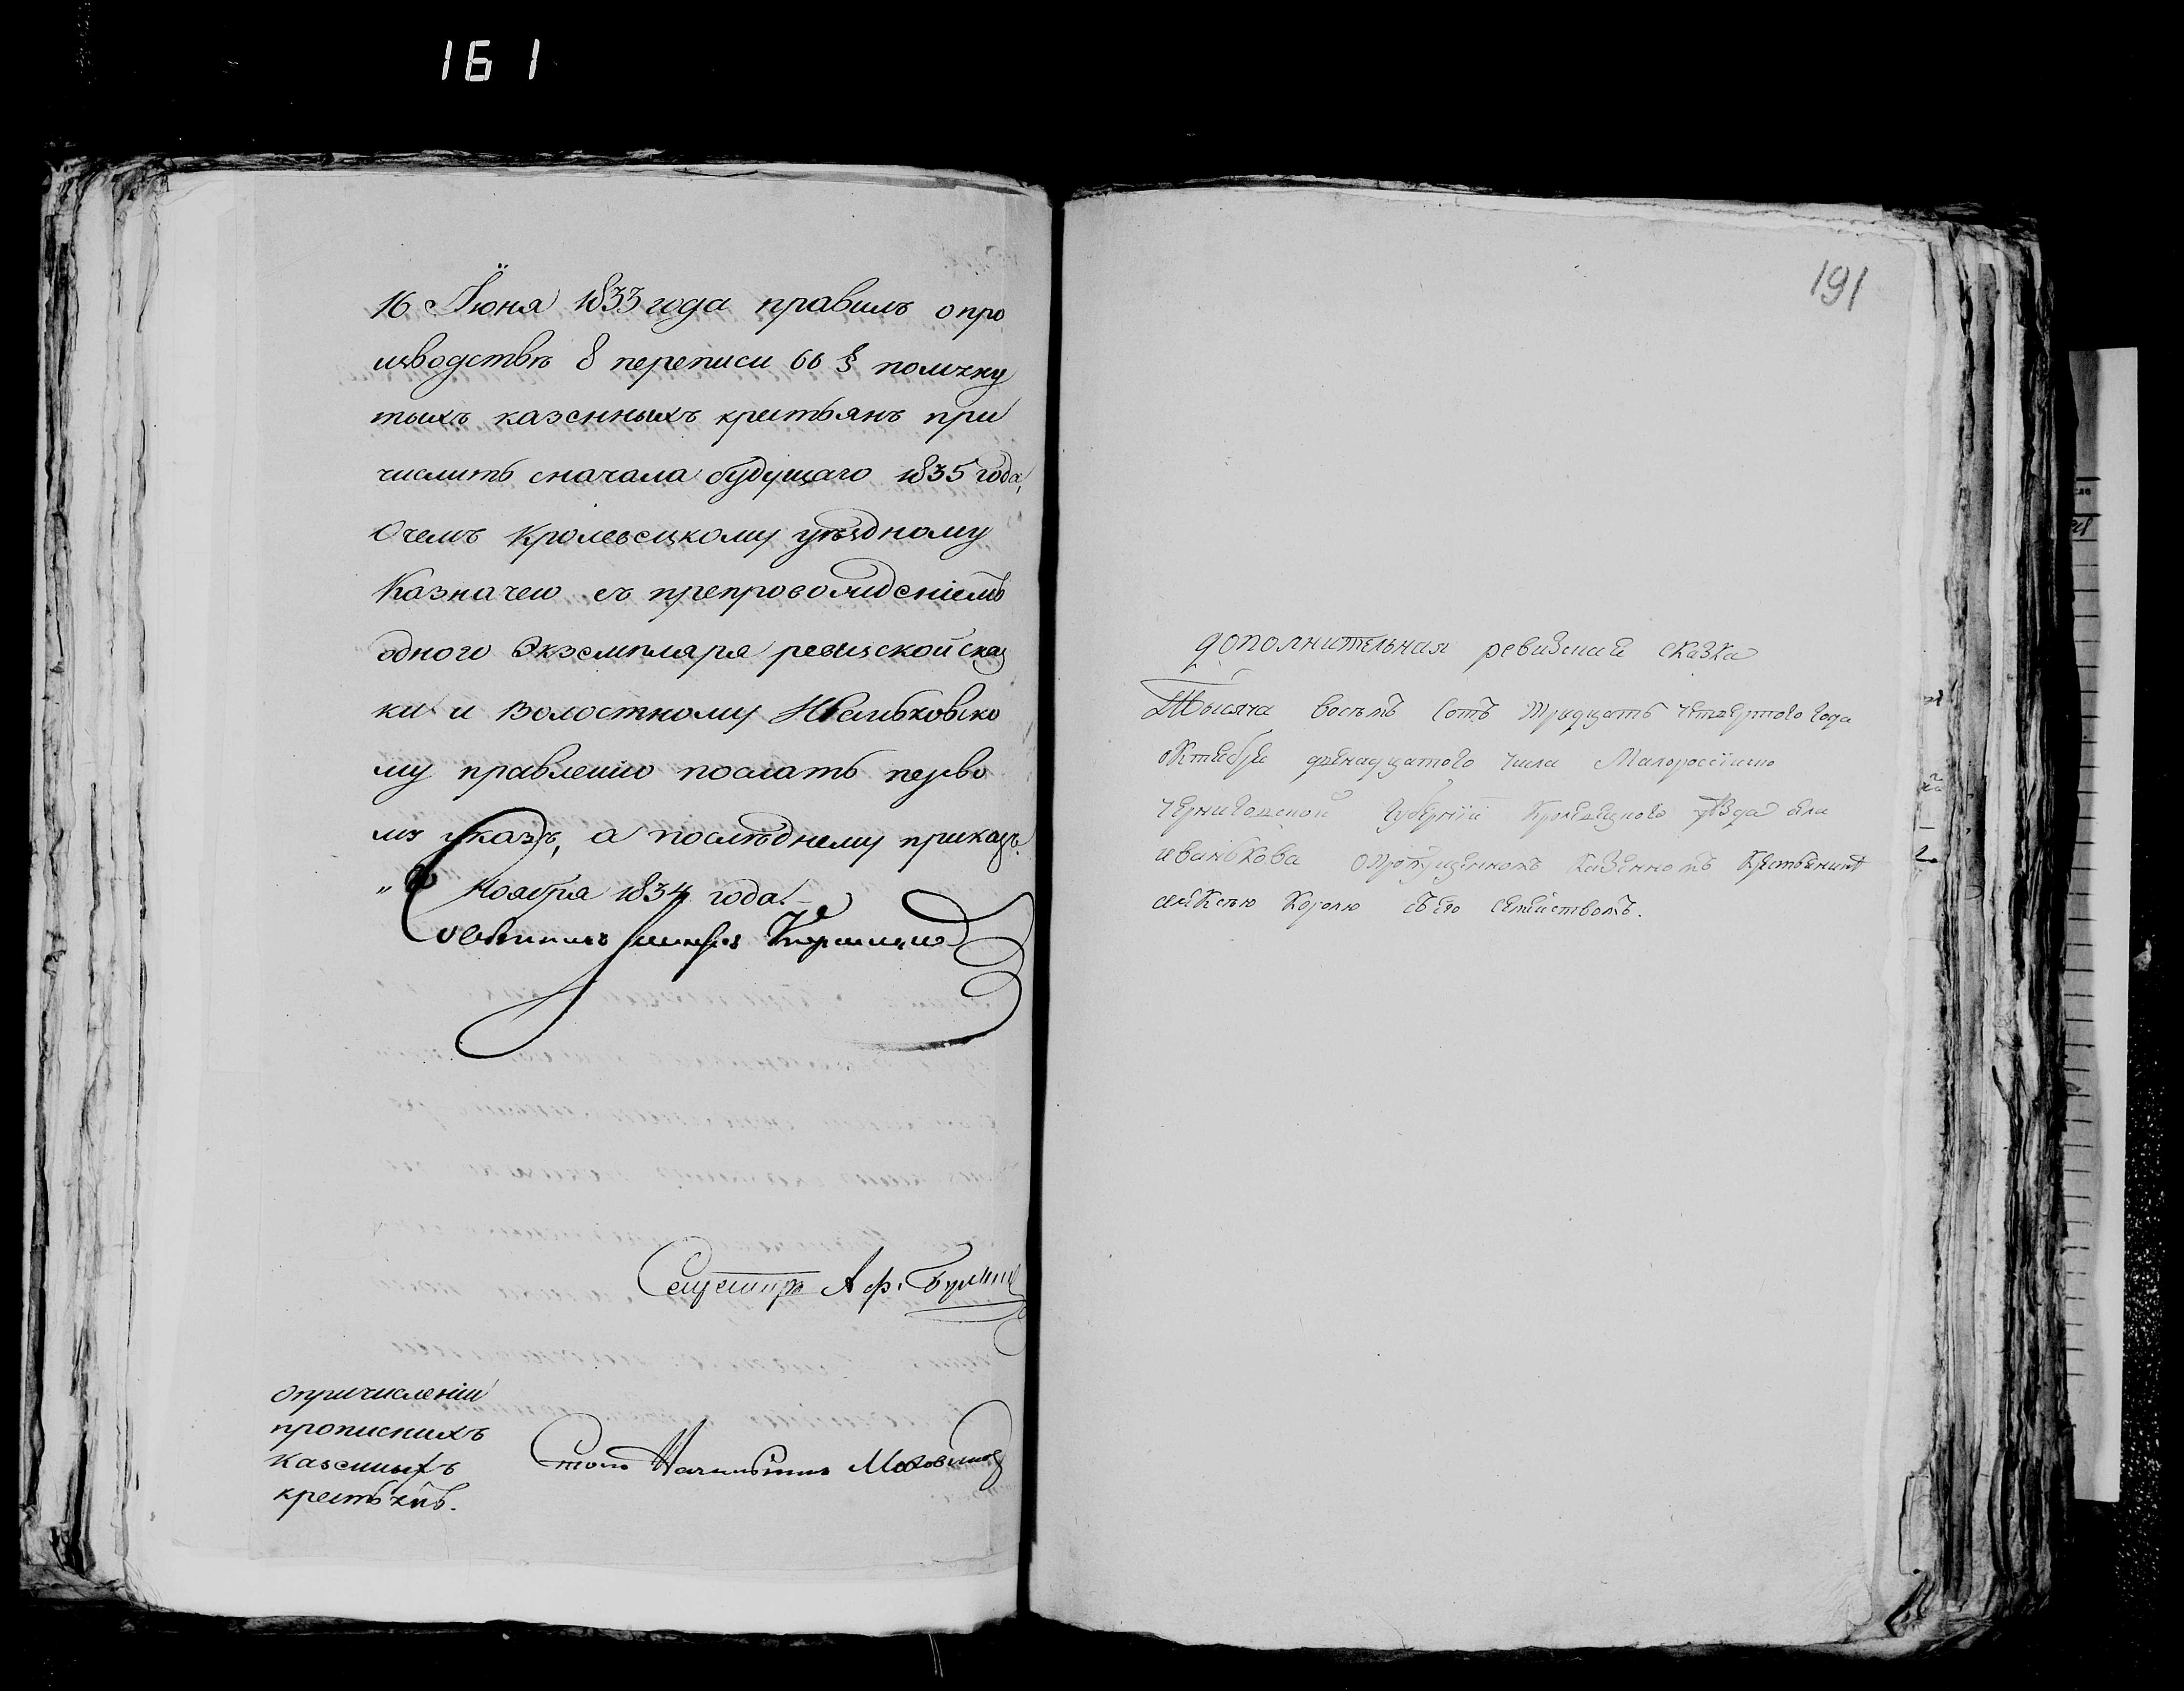 161
16 Іюня 1833 года правилъ о про
изводствѣ 8 переписи 66 § помяну
тыхъ казенныхъ крестьянъ при
числить сначала будущаго 1835 года,
О чемъ Кролевецкому уѣздному
Казначею съ препровожденіемъ
одного Экземпляра ревизской сказ
ки и Волостному Ивоньковско
му правленію послать перво
му указъ, а послѣднему приказъ.
Ноября 1834 года.
Совѣтникъ
Секретарь Аф.
о причисленіи
прописныхъ
казенныхъ
крестьянъ.
Столо Начальникъ
191
дополнительная ревизская сказка
Тысяча восемъ сотъ тридцать четвертого года
октября двенадцатого числа Малороссійско
черниговской губерніи Кролевецкого уѣзда села
иванькова опропущенномъ казенномъ крестьянине
алексѣю Королю съ его семействомъ.